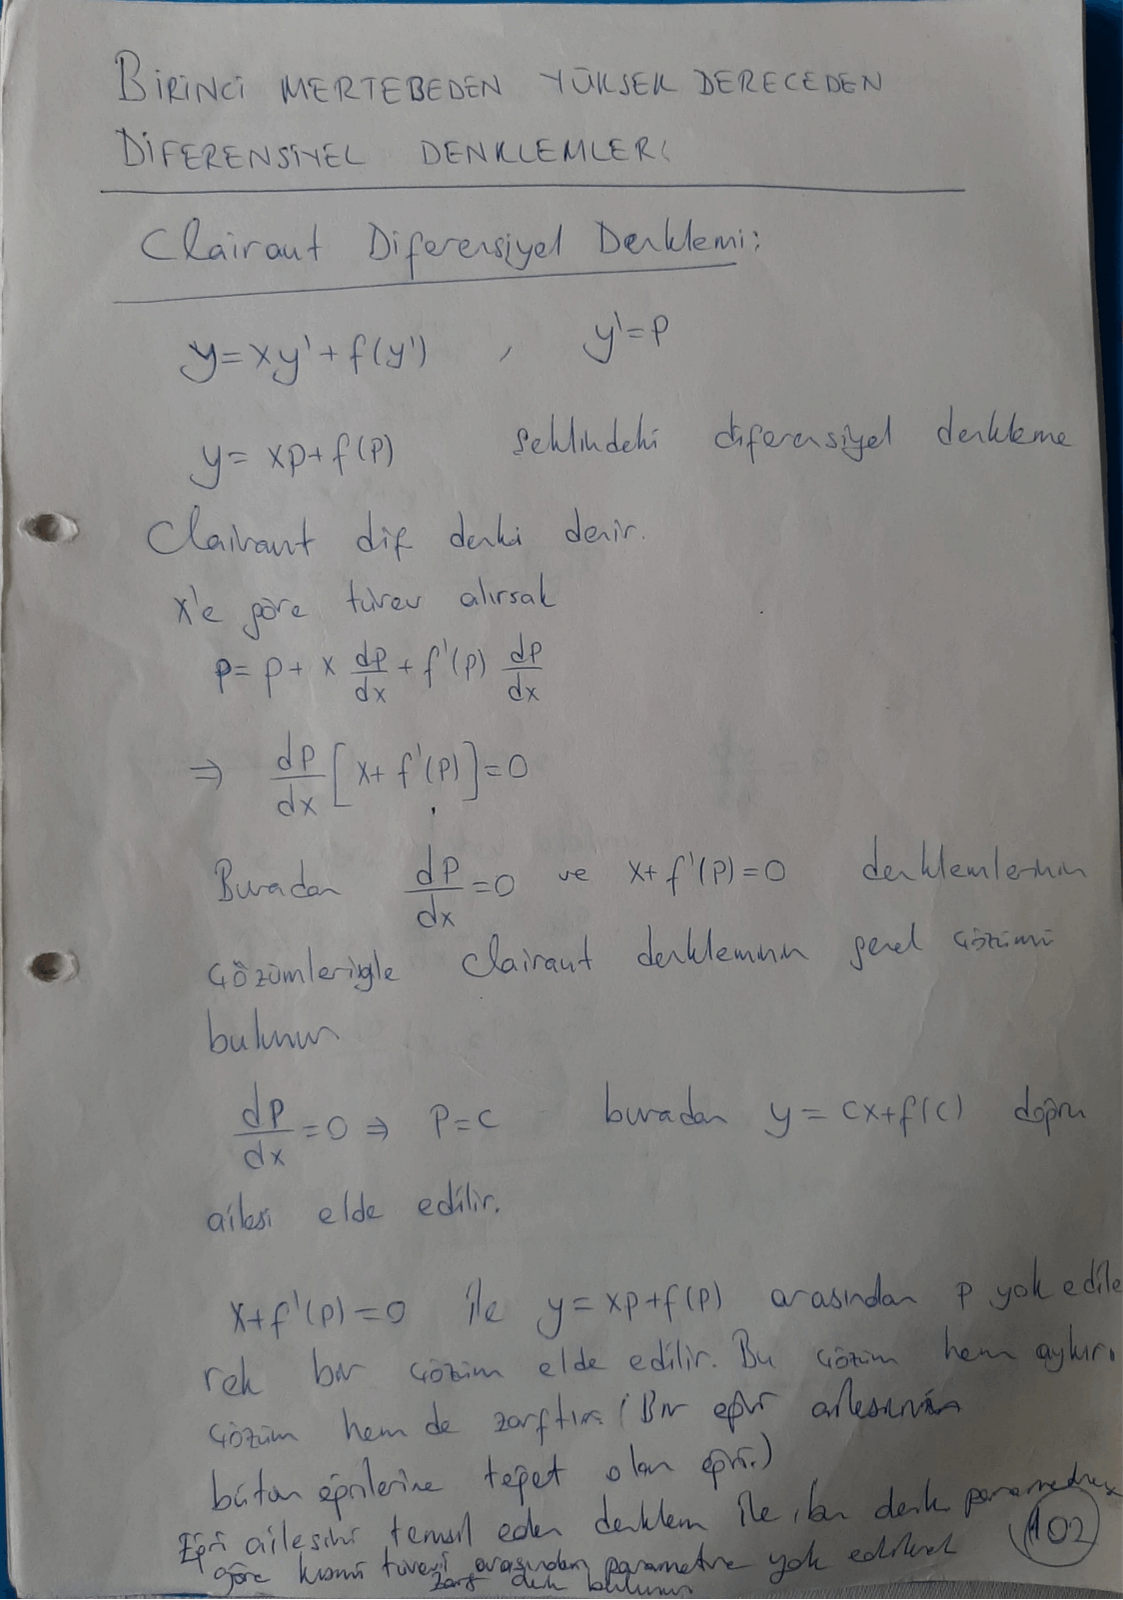 BİRİNCİ MERTEBEDEN YÜKSEK DERECEDEN
DİFERENSİYEL DENKLEMLERİ
Clairaut Diferensiyel Denklemi:
y=xy'+f(y') , y'=p
y= xp+f(p) şeklindeki diferensiyel denkleme
Clairaut dif denki denir.
x'e göre türev alırsak
p= p+ x dp/dx + f'(p) dp/dx
⇒ dp/dx [x+ f'(p)]=0
Buradan dp/dx =0 ve x+ f'(p)=0 denklemlerinin
çözümleriyle Clairaut denkleminin genel çözümü
bulunur
dp/dx =0 ⇒ p=c buradan y= cx+f(c) doğru
ailesi elde edilir.
x+f'(p)=0 ile y= xp+f(p) arasından p yok edile
rek bir çözüm elde edilir. Bu çözüm hem aykırı
çözüm hem de zarftır. (Bir eğri ailesinin
bütün eğrilerine teğet olan eğri.)
Eğri ailesini temsil eden denklem ile bu denk parametreye
göre kısmi türevi arasından parametre yok edilerek
zarf denk bulunur
102